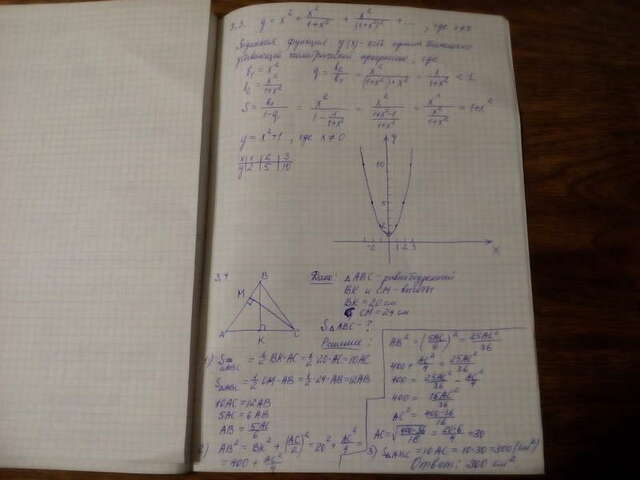 3.3. y = x² + x²/(1+x²) + x²/(1+x²)² + ..., где x≠0
Заданная функция y(x) - есть сумма бесконечно
убывающей геометрической прогрессии, где
b₁ = x²
b₂ = x²/(1+x²)
q = b₂/b₁ = x²/((1+x²)·x²) = 1/(1+x²) < 1
S = b₁/(1-q) = x²/(1 - 1/(1+x²)) = x²/((1+x²-1)/(1+x²)) = x²/(x²/(1+x²)) = 1+x²
y = x²+1, где x≠0
x 1 2 3
y 2 5 10
y
10
5
-2 1 2 3
x
3.4
B
M
A
K
C
Дано: △ABC - равнобедренный
BK и CM - высоты
BK = 20 см
CM = 24 см
S△ABC - ?
Решение:
1) S△ABC = 1/2 BK·AC = 1/2·20·AC = 10AC
S△ABC = 1/2 CM·AB = 1/2·24·AB = 12AB
10AC = 12AB
5AC = 6AB
AB = 5AC/6
2) AB² = BK² + (AC/2)² = 20² + AC²/4 =
= 400 + AC²/4
AB² = (5AC/6)² = 25AC²/36
400 + AC²/4 = 25AC²/36
400 = 25AC²/36 - AC²/4
400 = 16AC²/36
AC² = 400·36/16
AC = √(400·36/16) = 20·6/4 = 30
3) S△ABC = 10AC = 10·30 = 300 (см²)
Ответ: 300 см²